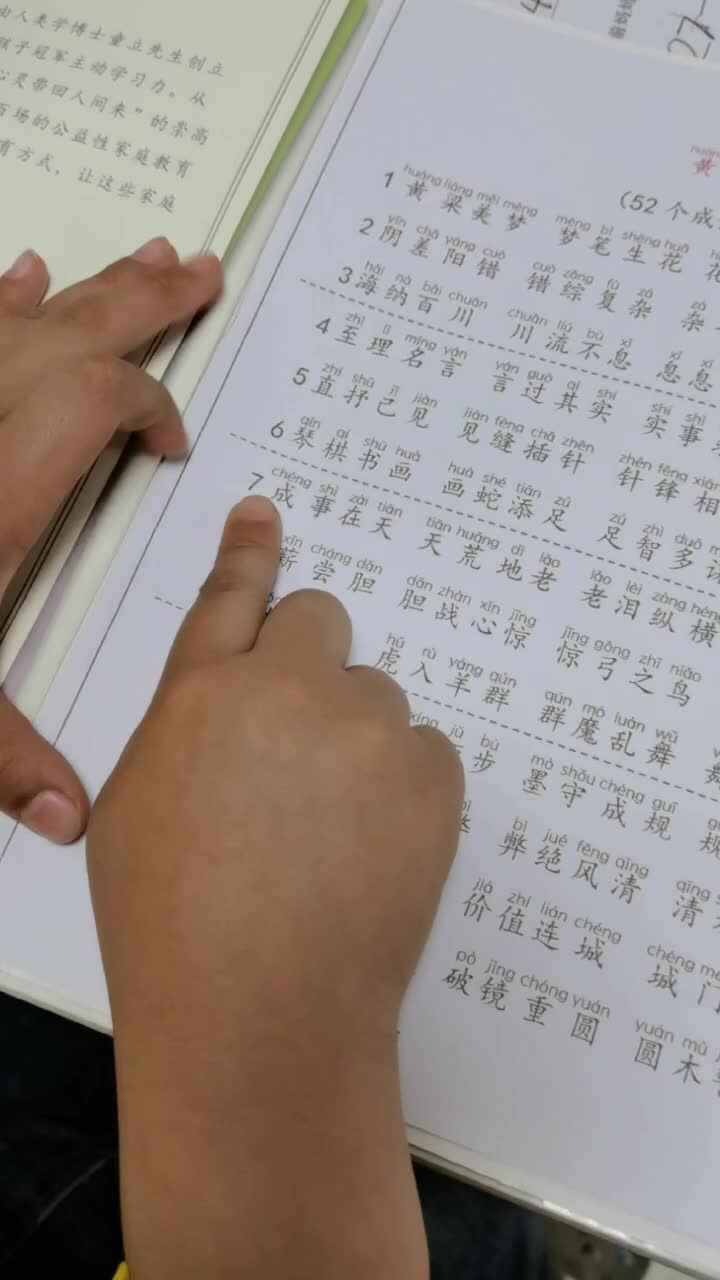 由人类学博士童立先生创立
孩子冠军主动学习力。从
心灵带回人间来”的崇高
百场的公益性家庭教育
有方式，让这些家庭
27
黄
（52 个成
huáng liáng měi mèng mèng bǐ shēng huā
1 黄粱美梦 梦笔生花 花
yīn chā yáng cuò cuò zōng fù zá zá
2 阴差阳错 错综复杂 杂
hǎi nà bǎi chuān chuān liú bù xī xī xī
3 海纳百川 川流不息 息息
zhì lǐ míng yán yán guò qí shí shí shì
4 至理名言 言过其实 实事
zhí shū jǐ jiàn jiàn fèng chā zhēn zhēn fēng xiāng
5 直抒己见 见缝插针 针锋相
qín qí shū huà huà shé tiān zú zú zhì duō
6 琴棋书画 画蛇添足 足智多
chéng shì zài tiān tiān huāng dì lǎo lǎo lèi zòng héng
7 成事在天 天荒地老 老泪纵横
xīn cháng dǎn dǎn zhàn xīn jīng jīng gōng zhī niǎo
薪尝胆 胆战心惊 惊弓之鸟
hǔ rù yáng qún qún mó luàn wǔ
虎入羊群 群魔乱舞 舞
xíng jǔ bù mò shǒu chéng guī
步 墨守成规 规
bì jué fēng qīng qīng
弊绝风清 清
jià zhí lián chéng chéng mén
价值连城 城门
pò jìng chóng yuán yuán mù
破镜重圆 圆木